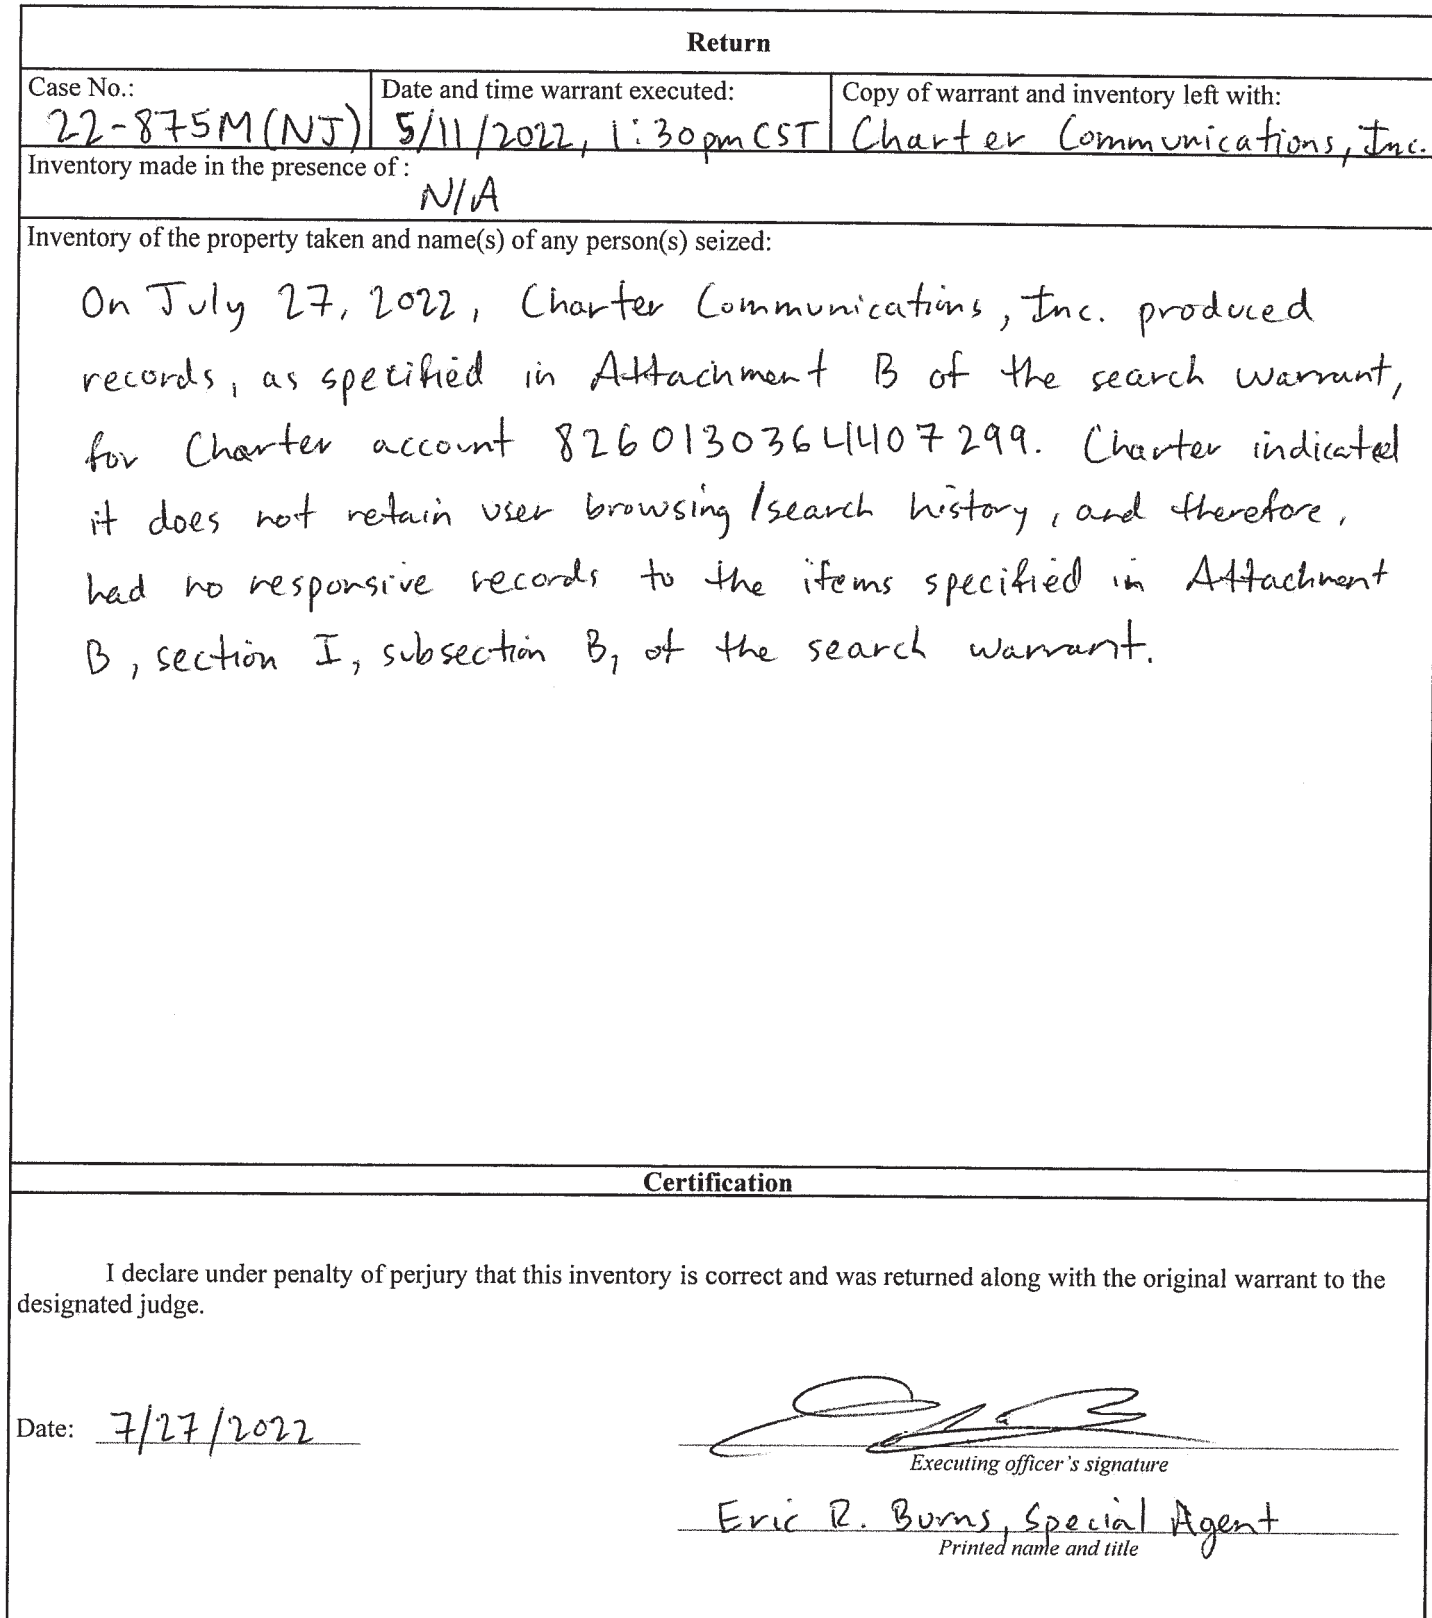 Return
Case No.: Date and time warrant executed: Copy of warrant and inventory left with:
22-875M(NJ) 5/11/2022, 1:30pm CST Charter Communications, Inc.
Inventory made in the presence of :
N/A
Inventory of the property taken and name(s) of any person(s) seized:
On July 27, 2022, Charter Communications, Inc. produced
records, as specified in Attachment B of the search warrant,
for Charter account 8260130364407299. Charter indicated
it does not retain user browsing/search history, and therefore,
had no responsive records to the items specified in Attachment
B, section I, subsection B, of the search warrant.
Certification
I declare under penalty of perjury that this inventory is correct and was returned along with the original warrant to the
designated judge.
Date: 7/27/2022
Executing officer's signature
Eric R. Burns, Special Agent
Printed name and title